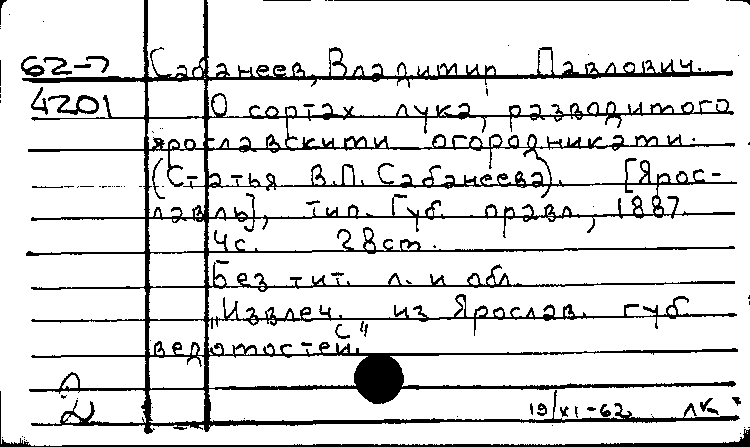 62-7 Сабанеев, Владимир Павлович.
4201 О сортах лука, разводимого
ярославскими огородниками.
(Статья В.П. Сабанеева). [Ярос-
лавль], тип. Губ. правл., 1887.
28 см.
Без тит. л. и обл.
„Извлеч. из Ярослав. губ.
ведомостей."
2 19/XI-62 ЛК